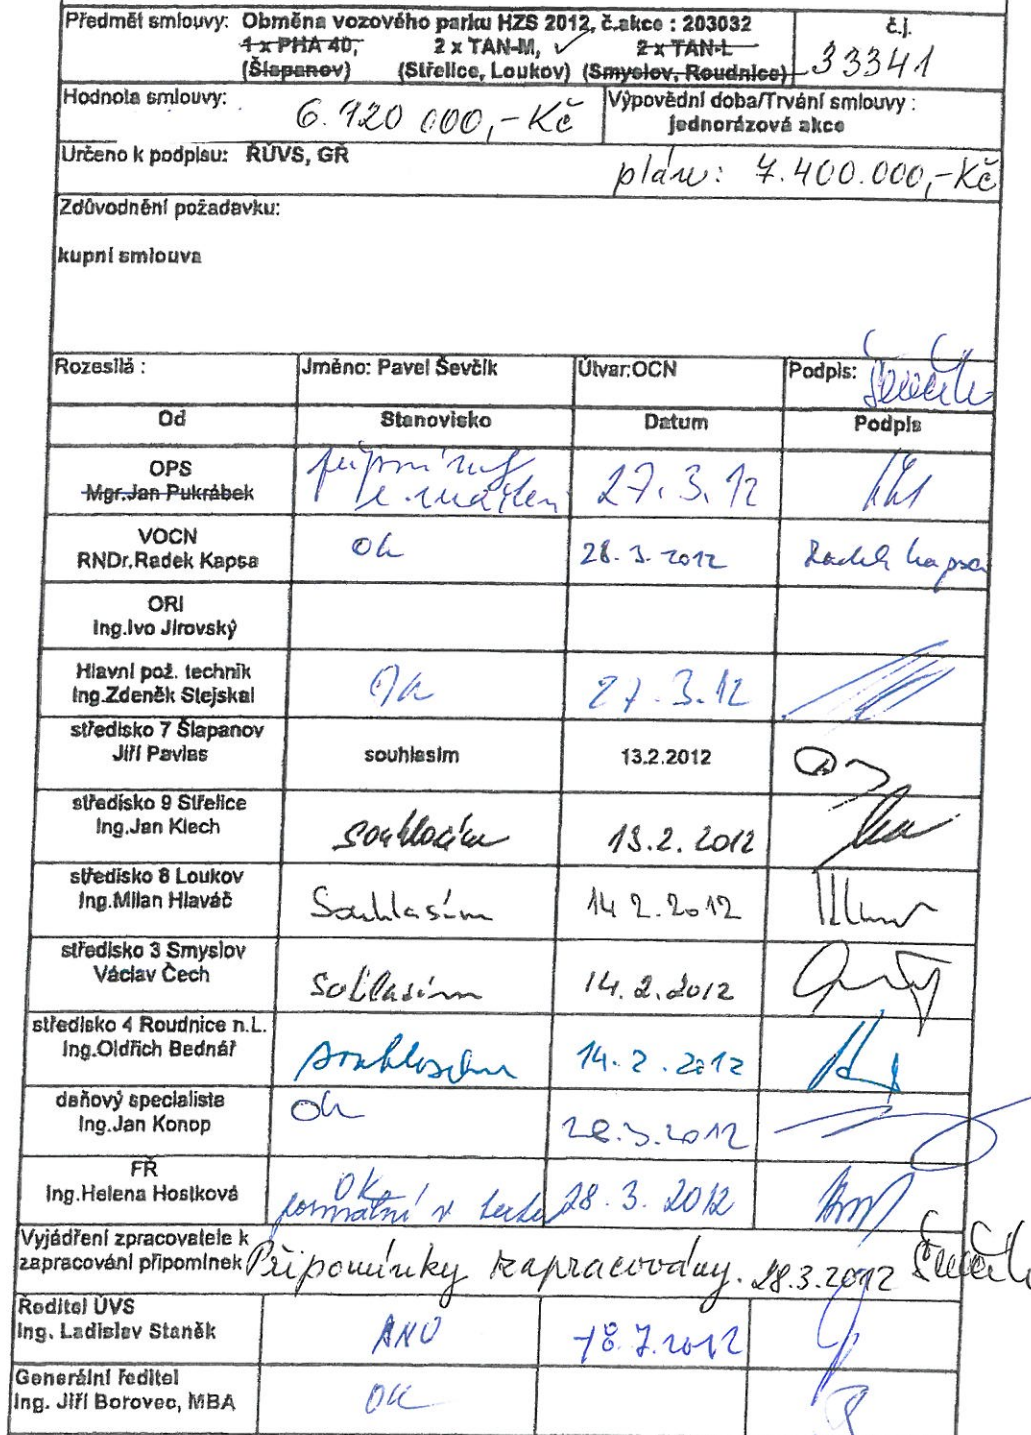 Předmět smlouvy: Obměna vozového parku HZS 2012, č.akce : 203032
1 x PHA 40, 2 x TAN-M, ✓ 2 x TAN-L
(Šlapanov) (Střelice, Loukov) (Smyslov, Roudnice)
č.j.
33341
Hodnota smlouvy: 6.920 000,-Kč
Výpovědní doba/Trvání smlouvy :
jednorázová akce
Určeno k podpisu: ŘÚVS, GŘ
plán: 7.400.000,-Kč
Zdůvodnění požadavku:
kupní smlouva
Rozesílá : Jméno: Pavel Ševčík Útvar:OCN Podpis: Ševčík
Od Stanovisko Datum Podpis
OPS
Mgr.Jan Pukrábek
27.3.12
VOCN
RNDr.Radek Kapsa
ok 28.3.2012 Radek Kapsa
ORI
Ing.Ivo Jirovský
Hlavní pož. technik
Ing.Zdeněk Stejskal
Ok 27.3.12
středisko 7 Šlapanov
Jiří Pavlas
souhlasím 13.2.2012
středisko 9 Střelice
Ing.Jan Klech
souhlasím 13.2.2012
středisko 8 Loukov
Ing.Milan Hlaváč
Souhlasím 14.2.2012
středisko 3 Smyslov
Václav Čech
souhlasím 14.2.2012
středisko 4 Roudnice n.L.
Ing.Oldřich Bednář
souhlasím 14.2.2012
daňový specialista
Ing.Jan Konop
Ok 28.3.2012
FŘ
Ing.Helena Hostková
OK
v textu 28.3.2012
Vyjádření zpracovatele k
zapracování připomínek Připomínky zapracovány. 28.3.2012 Ševčík
Ředitel ÚVS
Ing. Ladislav Staněk
ANO 18.7.2012
Generální ředitel
Ing. Jiří Borovec, MBA
OK